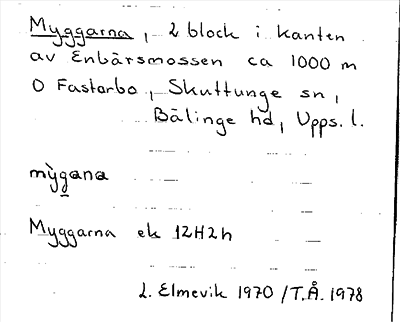 Myggarna, 2 block i kanten
av Enbärsmossen ca 1000 m
O Fastarbo, Skuttunge sn,
Bälinge hd, Upps. l.
mỳgana
Myggarna ek 12H2h
L. Elmevik 1970 /T.Å. 1978